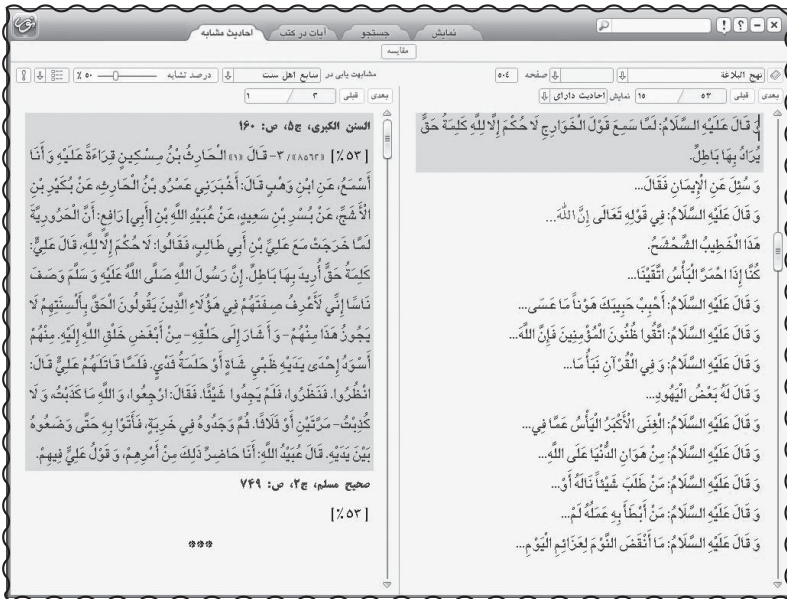 نمایش
جستجو
آیات در کتب
احادیث مشابه
مقایسه
نهج البلاغة
صفحه ۵۰۴
بعدی قبلی ۵۳ / ۱۵ نمایش احادیث دارای
وَ قَالَ عَلَيْهِ السَّلَامُ: لَمَّا سَمِعَ قَوْلَ الْخَوَارِجِ لَا حُكْمَ إِلَّا لِلَّهِ كَلِمَةُ حَقٍّ
يُرَادُ بِهَا بَاطِلٌ.
وَ سُئِلَ عَنِ الْإِيمَانِ فَقَالَ...
وَ قَالَ عَلَيْهِ السَّلَامُ: فِي قَوْلِهِ تَعَالَى إِنَّ اللَّهَ...
هَذَا الْخَطِيبُ الشَّحْشَحُ.
كُنَّا إِذَا احْمَرَّ الْبَأْسُ اتَّقَيْنَا...
وَ قَالَ عَلَيْهِ السَّلَامُ: أَحْبِبْ حَبِيبَكَ هَوْناً مَا عَسَى...
وَ قَالَ عَلَيْهِ السَّلَامُ: اتَّقُوا ظُنُونَ الْمُؤْمِنِينَ فَإِنَّ اللَّهَ...
وَ قَالَ عَلَيْهِ السَّلَامُ: وَ فِي الْقُرْآنِ نَبَأُ مَا...
وَ قَالَ لَهُ بَعْضُ الْيَهُودِ...
وَ قَالَ عَلَيْهِ السَّلَامُ: الْغِنَى الْأَكْبَرُ الْيَأْسُ عَمَّا فِي...
وَ قَالَ عَلَيْهِ السَّلَامُ: مِنْ هَوَانِ الدُّنْيَا عَلَى اللَّهِ...
وَ قَالَ عَلَيْهِ السَّلَامُ: مَنْ طَلَبَ شَيْئاً نَالَهُ أَوْ...
وَ قَالَ عَلَيْهِ السَّلَامُ: مَنْ أَبْطَأَ بِهِ عَمَلُهُ لَمْ...
وَ قَالَ عَلَيْهِ السَّلَامُ: مَا أَنْقَضَ النَّوْمَ لِعَزَائِمِ الْيَوْمِ...
مشابهت یابی در منابع اهل سنت درصد تشابه ۵۰ ٪
بعدی قبلی ۳ / ۱
السنن الكبرى، ج۵، ص: ۱۶۰
[۵۳٪] «۸۵۶۲»/ ۳- قَالَ «۱» الْحَارِثُ بْنُ مِسْكِينٍ قِرَاءَةً عَلَيْهِ وَ أَنَا
أَسْمَعُ، عَنِ ابْنِ وَهْبٍ قَالَ: أَخْبَرَنِي عَمْرُو بْنُ الْحَارِثِ، عَنْ بُكَيْرِ بْنِ
الْأَشَجِّ، عَنْ بُسْرِ بْنِ سَعِيدٍ، عَنْ عُبَيْدِ اللَّهِ بْنِ [أَبِي] رَافِعٍ: أَنَّ الْحَرُورِيَّةَ
لَمَّا خَرَجَتْ مَعَ عَلِيِّ بْنِ أَبِي طَالِبٍ، فَقَالُوا: لَا حُكْمَ إِلَّا لِلَّهِ، قَالَ عَلِيٌّ:
كَلِمَةُ حَقٍّ أُرِيدَ بِهَا بَاطِلٌ. إِنَّ رَسُولَ اللَّهِ صَلَّى اللَّهُ عَلَيْهِ وَ سَلَّمَ وَصَفَ
نَاسًا إِنِّي لَأَعْرِفُ صِفَتَهُمْ فِي هَؤُلَاءِ الَّذِينَ يَقُولُونَ الْحَقَّ بِأَلْسِنَتِهِمْ لَا
يَجُوزُ هَذَا مِنْهُمْ- وَ أَشَارَ إِلَى حَلْقِهِ- مِنْ أَبْغَضِ خَلْقِ اللَّهِ إِلَيْهِ. مِنْهُمْ
أَسْوَدُ إِحْدَى يَدَيْهِ طُبْيُ شَاةٍ أَوْ حَلَمَةُ ثَدْيٍ. فَلَمَّا قَاتَلَهُمْ عَلِيٌّ قَالَ:
انْظُرُوا. فَنَظَرُوا، فَلَمْ يَجِدُوا شَيْئًا. فَقَالَ: ارْجِعُوا، وَ اللَّهِ مَا كَذَبْتُ، وَ لَا
كُذِبْتُ- مَرَّتَيْنِ أَوْ ثَلَاثًا. ثُمَّ وَجَدُوهُ فِي خَرِبَةٍ، فَأَتَوْا بِهِ حَتَّى وَضَعُوهُ
بَيْنَ يَدَيْهِ. قَالَ عُبَيْدُ اللَّهِ: أَنَا حَاضِرٌ ذَلِكَ مِنْ أَمْرِهِمْ، وَ قَوْلُ عَلِيٍّ فِيهِمْ.
صحيح مسلم، ج۲، ص: ۷۴۹
[۵۳٪]
***